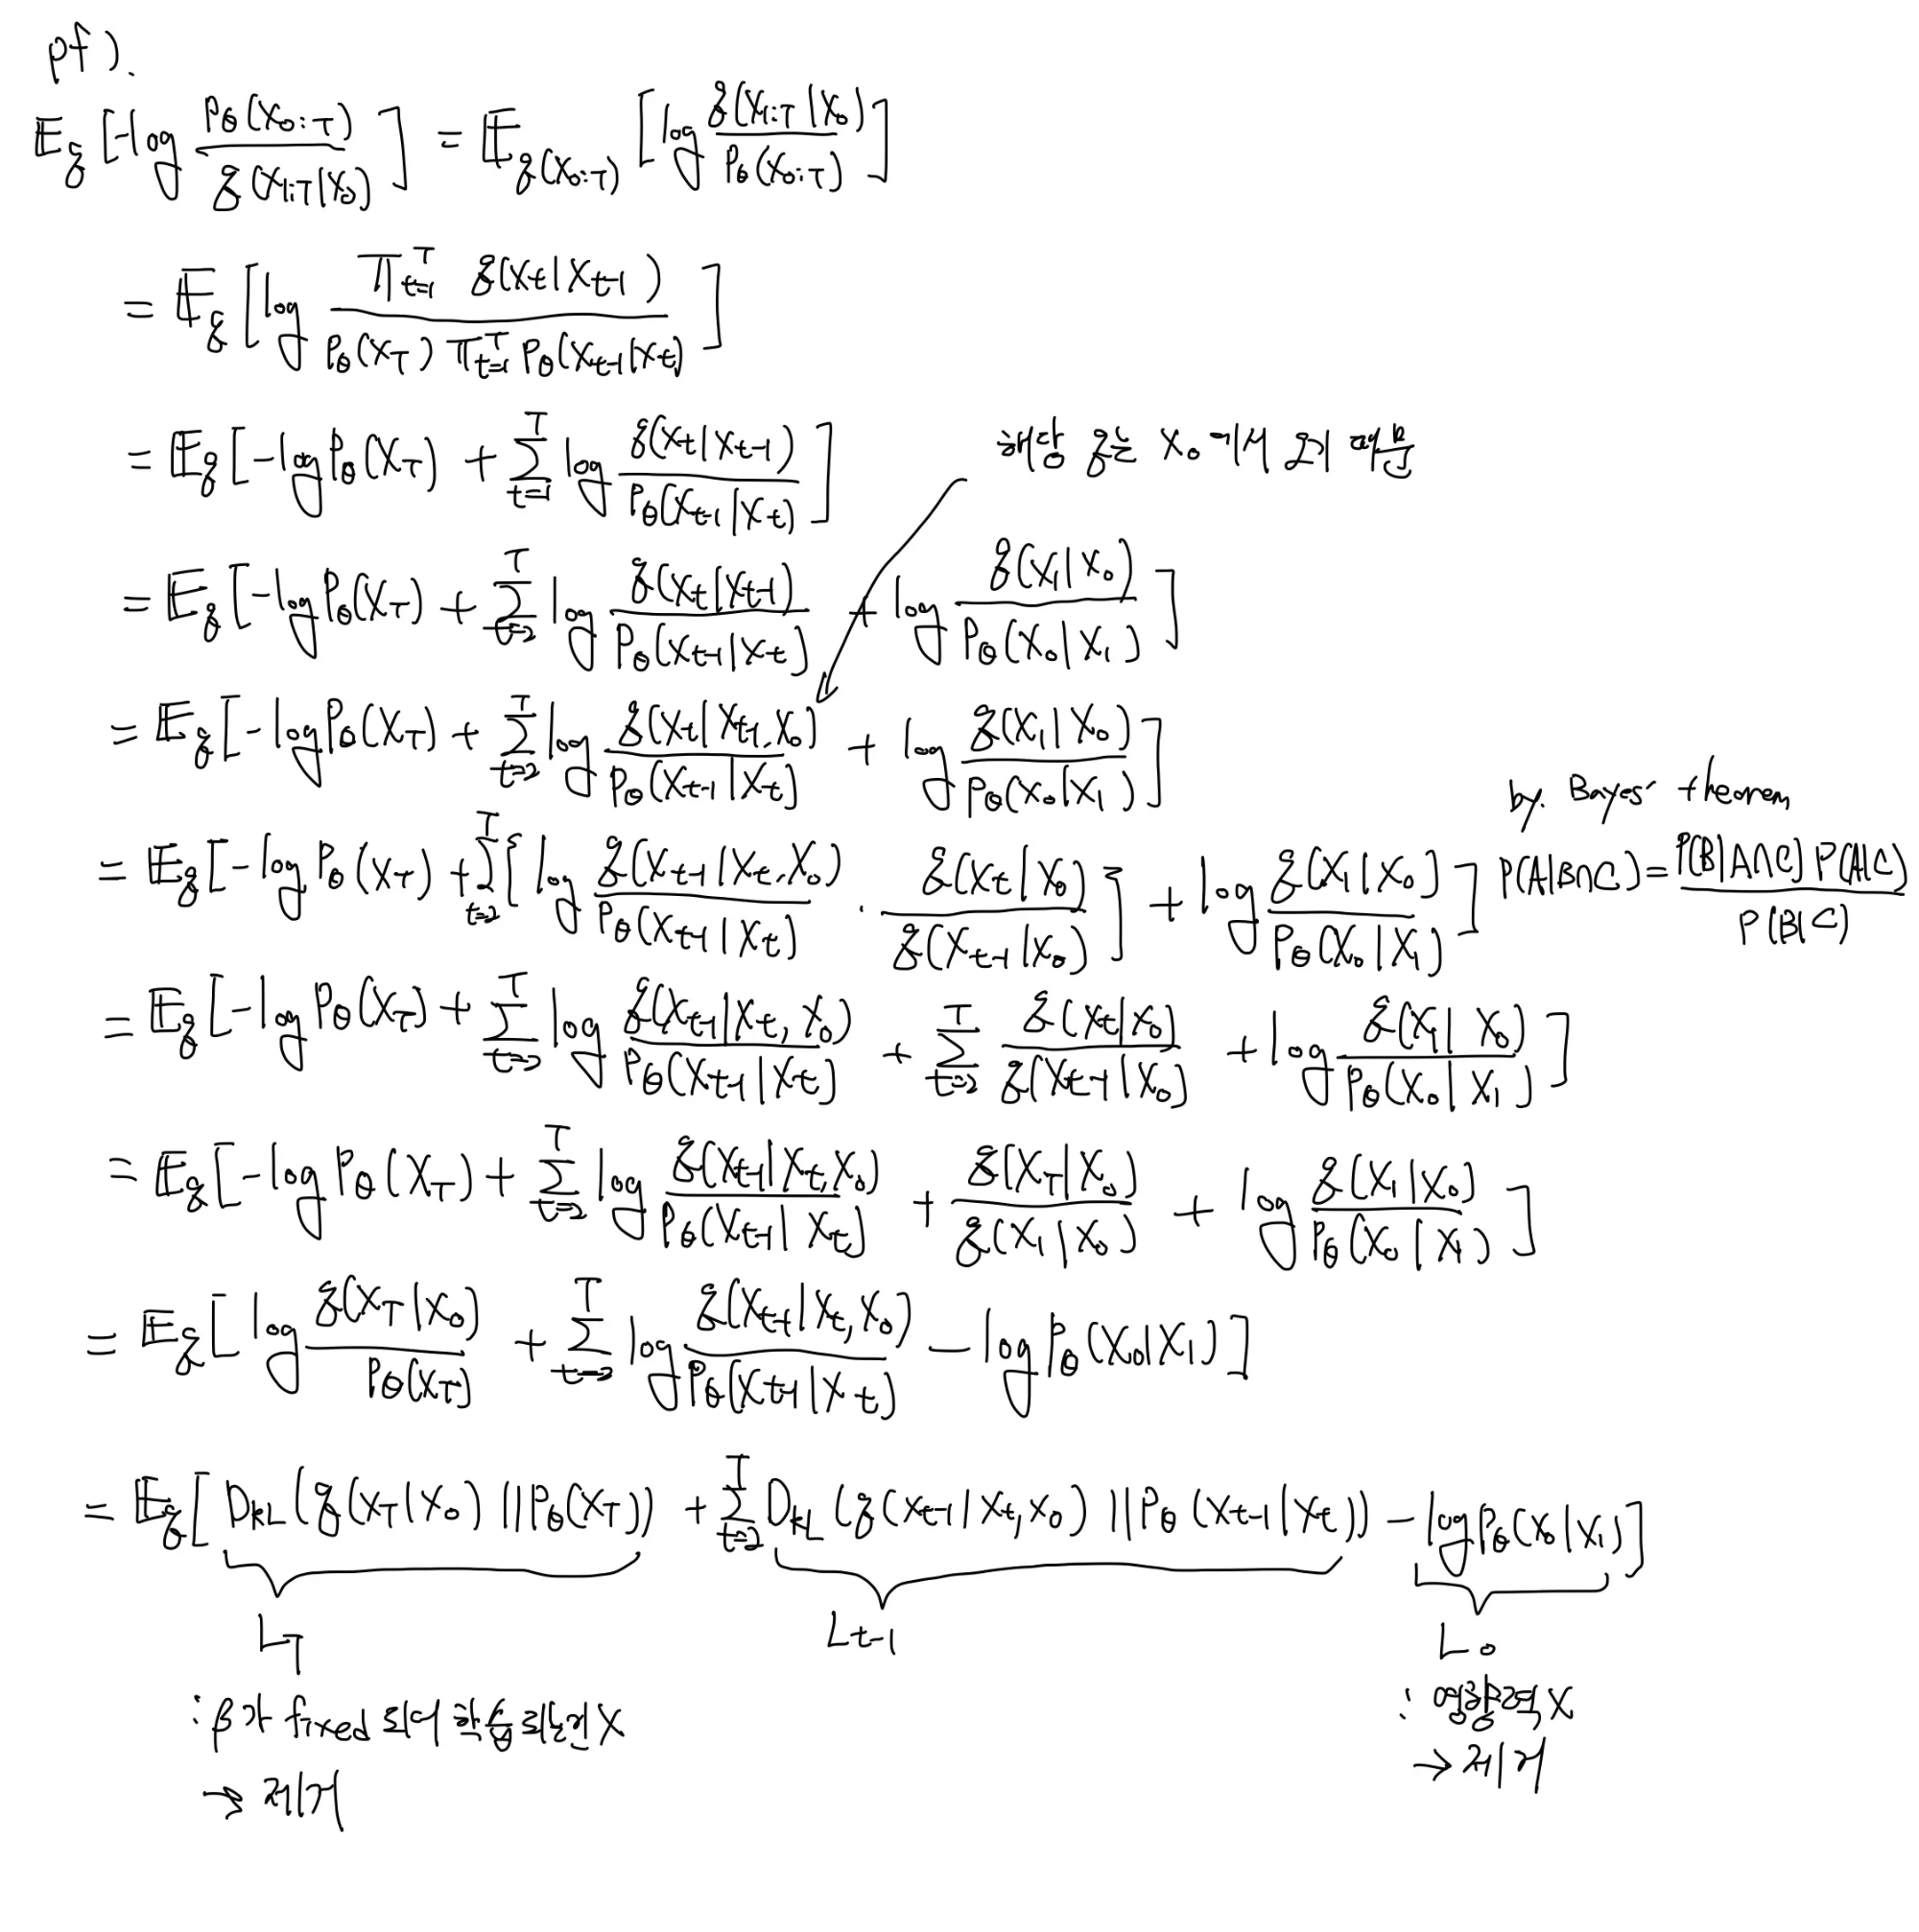 pf).
𝔼_q [-log P_θ(X_{0:T}) / q(X_{1:T}|X_0)] = 𝔼_{q(X_{0:T})} [log q(X_{1:T}|X_0) / P_θ(X_{0:T})]
= 𝔼_q [log ∏_{t=1}^T q(X_t|X_{t-1}) / P_θ(X_T) ∏_{t=1}^T P_θ(X_{t-1}|X_t)]
= 𝔼_q [-log P_θ(X_T) + Σ_{t=1}^T log q(X_t|X_{t-1}) / P_θ(X_{t-1}|X_t)]
해당 q는 X_0에서
= 𝔼_q [-log P_θ(X_T) + Σ_{t=2}^T log q(X_t|X_{t-1}) / P_θ(X_{t-1}|X_t) + log q(X_1|X_0) / P_θ(X_0|X_1)]
= 𝔼_q [-log P_θ(X_T) + Σ_{t=2}^T log q(X_t|X_{t-1}, X_0) / P_θ(X_{t-1}|X_t) + log q(X_1|X_0) / P_θ(X_0|X_1)]
by. Bayes' theorem
= 𝔼_q [-log P_θ(X_T) + Σ_{t=2}^T [log q(X_{t-1}|X_t, X_0) / P_θ(X_{t-1}|X_t) · q(X_t|X_0) / q(X_{t-1}|X_0)] + log q(X_1|X_0) / P_θ(X_0|X_1)] P(A|B∩C) = P(B|A∩C) P(A|C) / P(B|C)
= 𝔼_q [-log P_θ(X_T) + Σ_{t=2}^T log q(X_{t-1}|X_t, X_0) / P_θ(X_{t-1}|X_t) + Σ_{t=2}^T q(X_t|X_0) / q(X_{t-1}|X_0) + log q(X_1|X_0) / P_θ(X_0|X_1)]
= 𝔼_q [-log P_θ(X_T) + Σ_{t=2}^T log q(X_{t-1}|X_t, X_0) / P_θ(X_{t-1}|X_t) + q(X_T|X_0) / q(X_1|X_0) + log q(X_1|X_0) / P_θ(X_0|X_1)]
= 𝔼_q [log q(X_T|X_0) / P_θ(X_T) + Σ_{t=2}^T log q(X_{t-1}|X_t, X_0) / P_θ(X_{t-1}|X_t) - log P_θ(X_0|X_1)]
= 𝔼_q [D_{KL}(q(X_T|X_0) || P_θ(X_T)) + Σ_{t=2}^T D_{KL}(q(X_{t-1}|X_t, X_0) || P_θ(X_{t-1}|X_t)) - log P_θ(X_0|X_1)]
L_T L_{t-1} L_0
: β가 fixed 되어 학습되는지 X
→ 제거
: 영향력 X
→ 제거